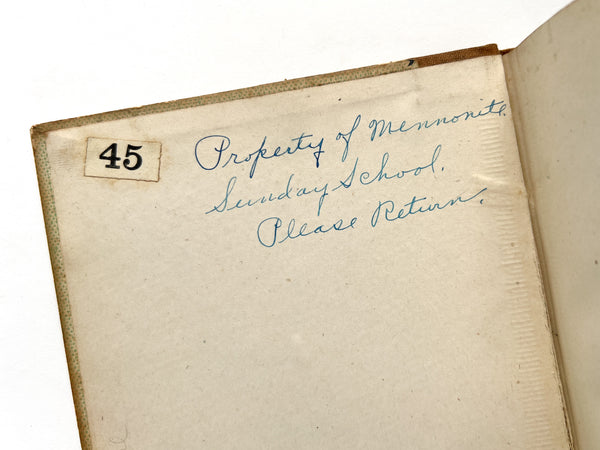 45
Property of Mennonite
Sunday School.
Please Return.